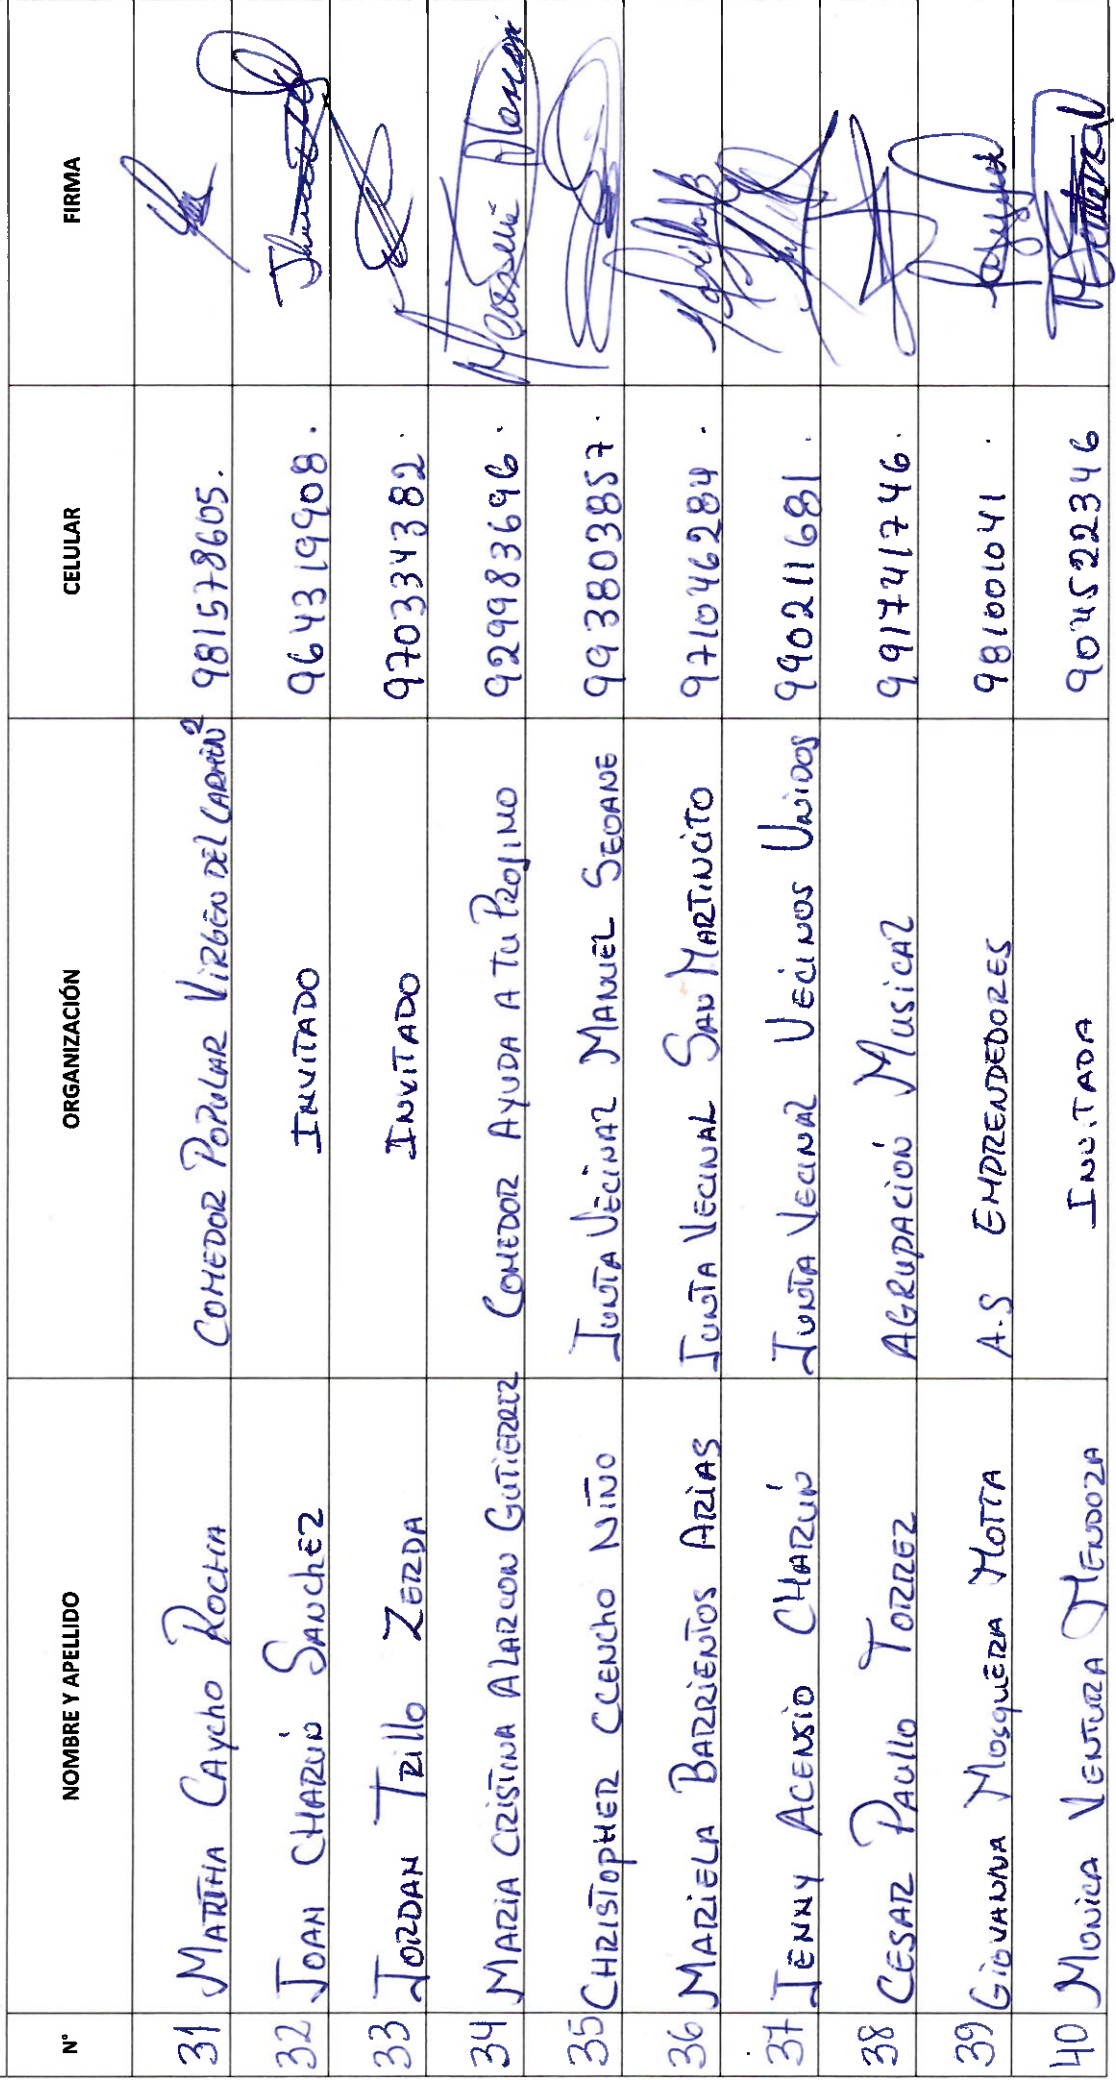 N° NOMBRE Y APELLIDO ORGANIZACIÓN CELULAR FIRMA
31 MARTHA CAycho ROCHA COMEDOR POPULAR VIRGEN DEL CARMEN 2 981578605.
32 JOAN CHARÚN SANCHEZ INVITADO 964319908.
33 JORDAN TRILLO ZERDA INVITADO 970334382.
34 MARIA CRISTINA ALARCON GUTIERREZ COMEDOR AYUDA A TU PROJIMO 929983696.
35 CHRISTOPHER CCENCHO NIÑO JUNTA VECINAL MANUEL SEOANE 993803857.
36 MARIELA BARRIENTOS ARIAS JUNTA VECINAL SAN MARTINCITO 971046284.
37 JENNY ACENSIO CHARÚN JUNTA VECINAL VECINOS UNIDOS 990211681.
38 CESAR PAULLO TORREZ AGRUPACIÓN MUSICAL 991741746.
39 GIOVANNA MOSQUERA MOTTA A.S EMPRENDEDORES 981001041.
40 MONICA VENTURA MENDOZA INVITADA 904522346